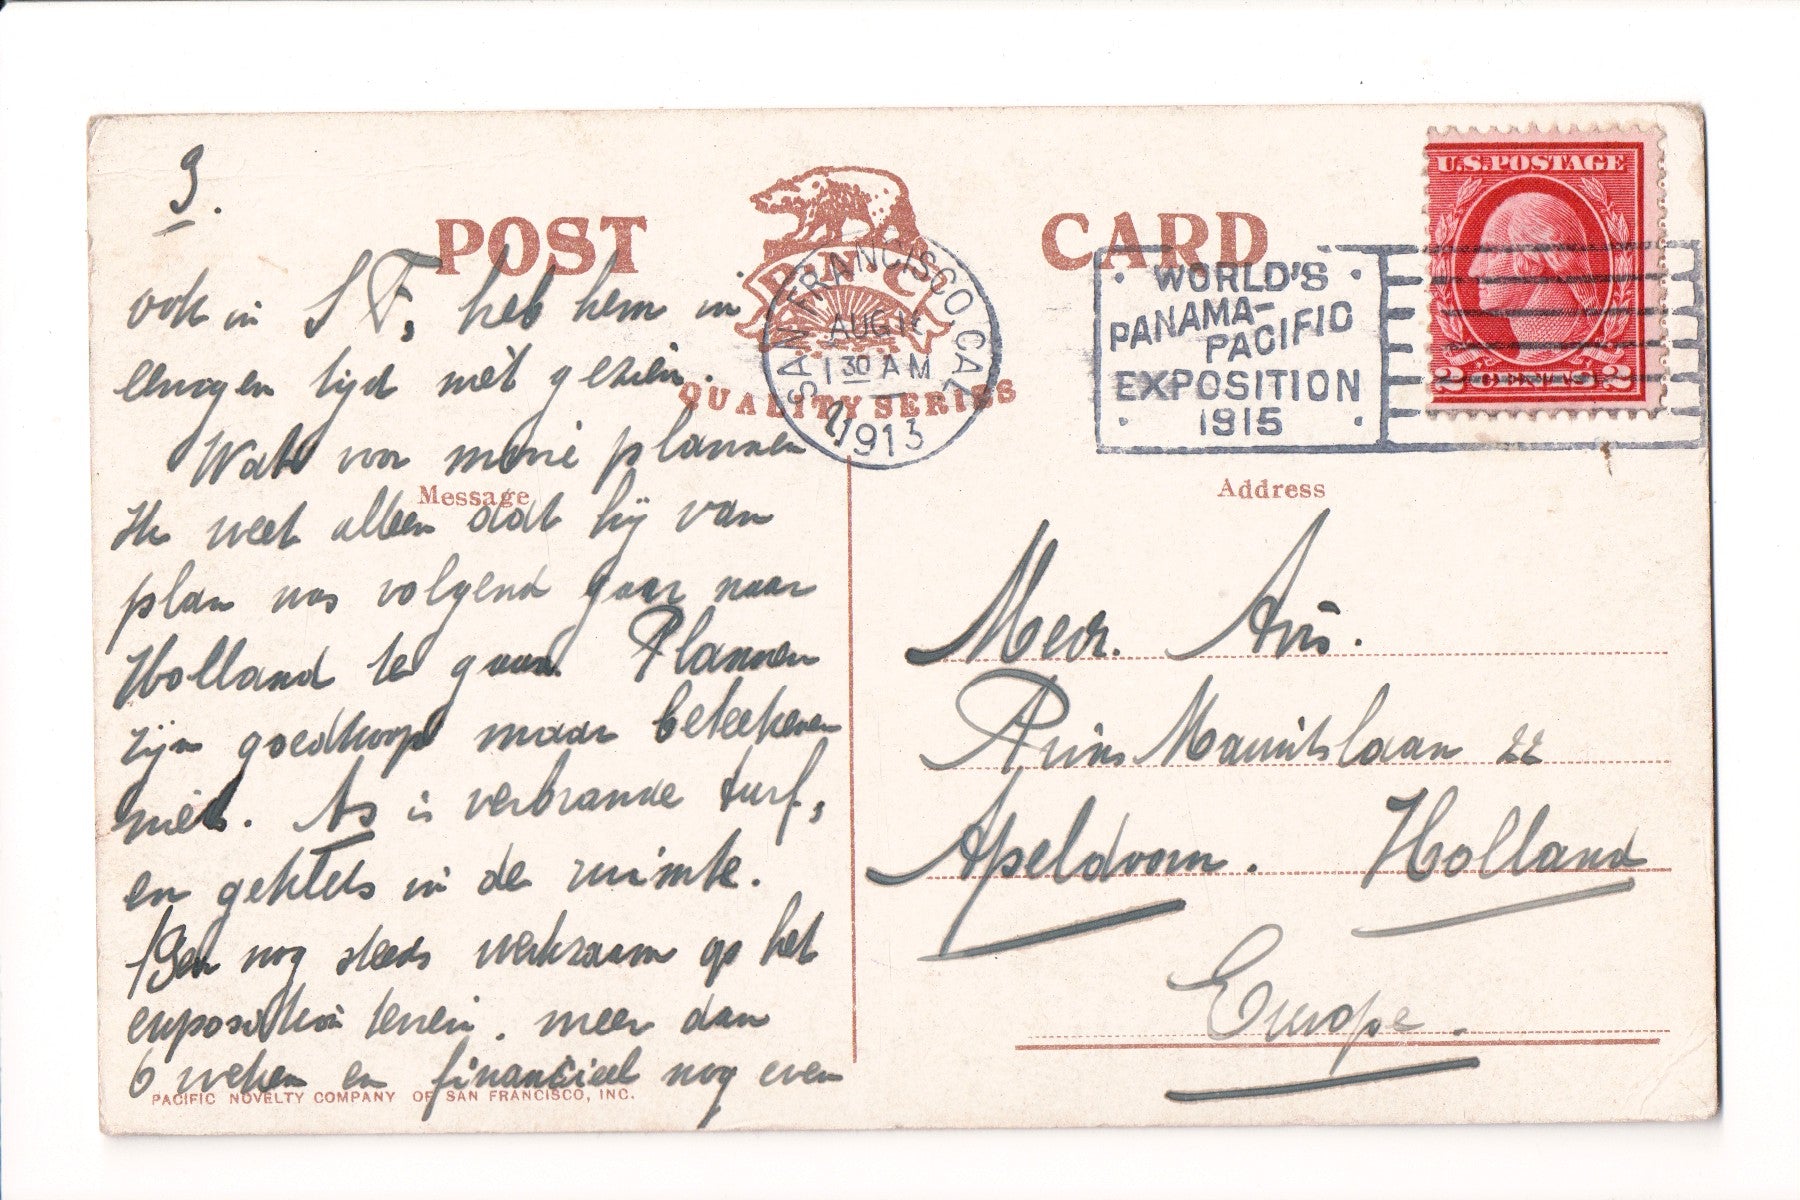 3.
POST CARD
P.N.C.
QUALITY SERIES
SAN FRANCISCO, CAL.
AUG 12
1 30 AM
1913
WORLD'S
PANAMA-
PACIFIC
EXPOSITION
1915
U.S. POSTAGE
2 CENTS 2
Message
Address
ook in S F, heb hem in
eenigen tijd niet gezien.
Wat voor mooie plannen
Ik weet alleen dat hij van
plan was volgend jaar naar
Holland te gaan. Plannen
zijn goedkoop maar beteekenen
niets. As is verbrande turf,
en geklets in de ruimte.
Ben nog steeds werkzaam op het
exposition terrein. meer dan
6 weken en financieel nog even
Mevr. Avis.
Prins Mauritslaan 22
Apeldoorn. Holland
Europe.
PACIFIC NOVELTY COMPANY OF SAN FRANCISCO, INC.